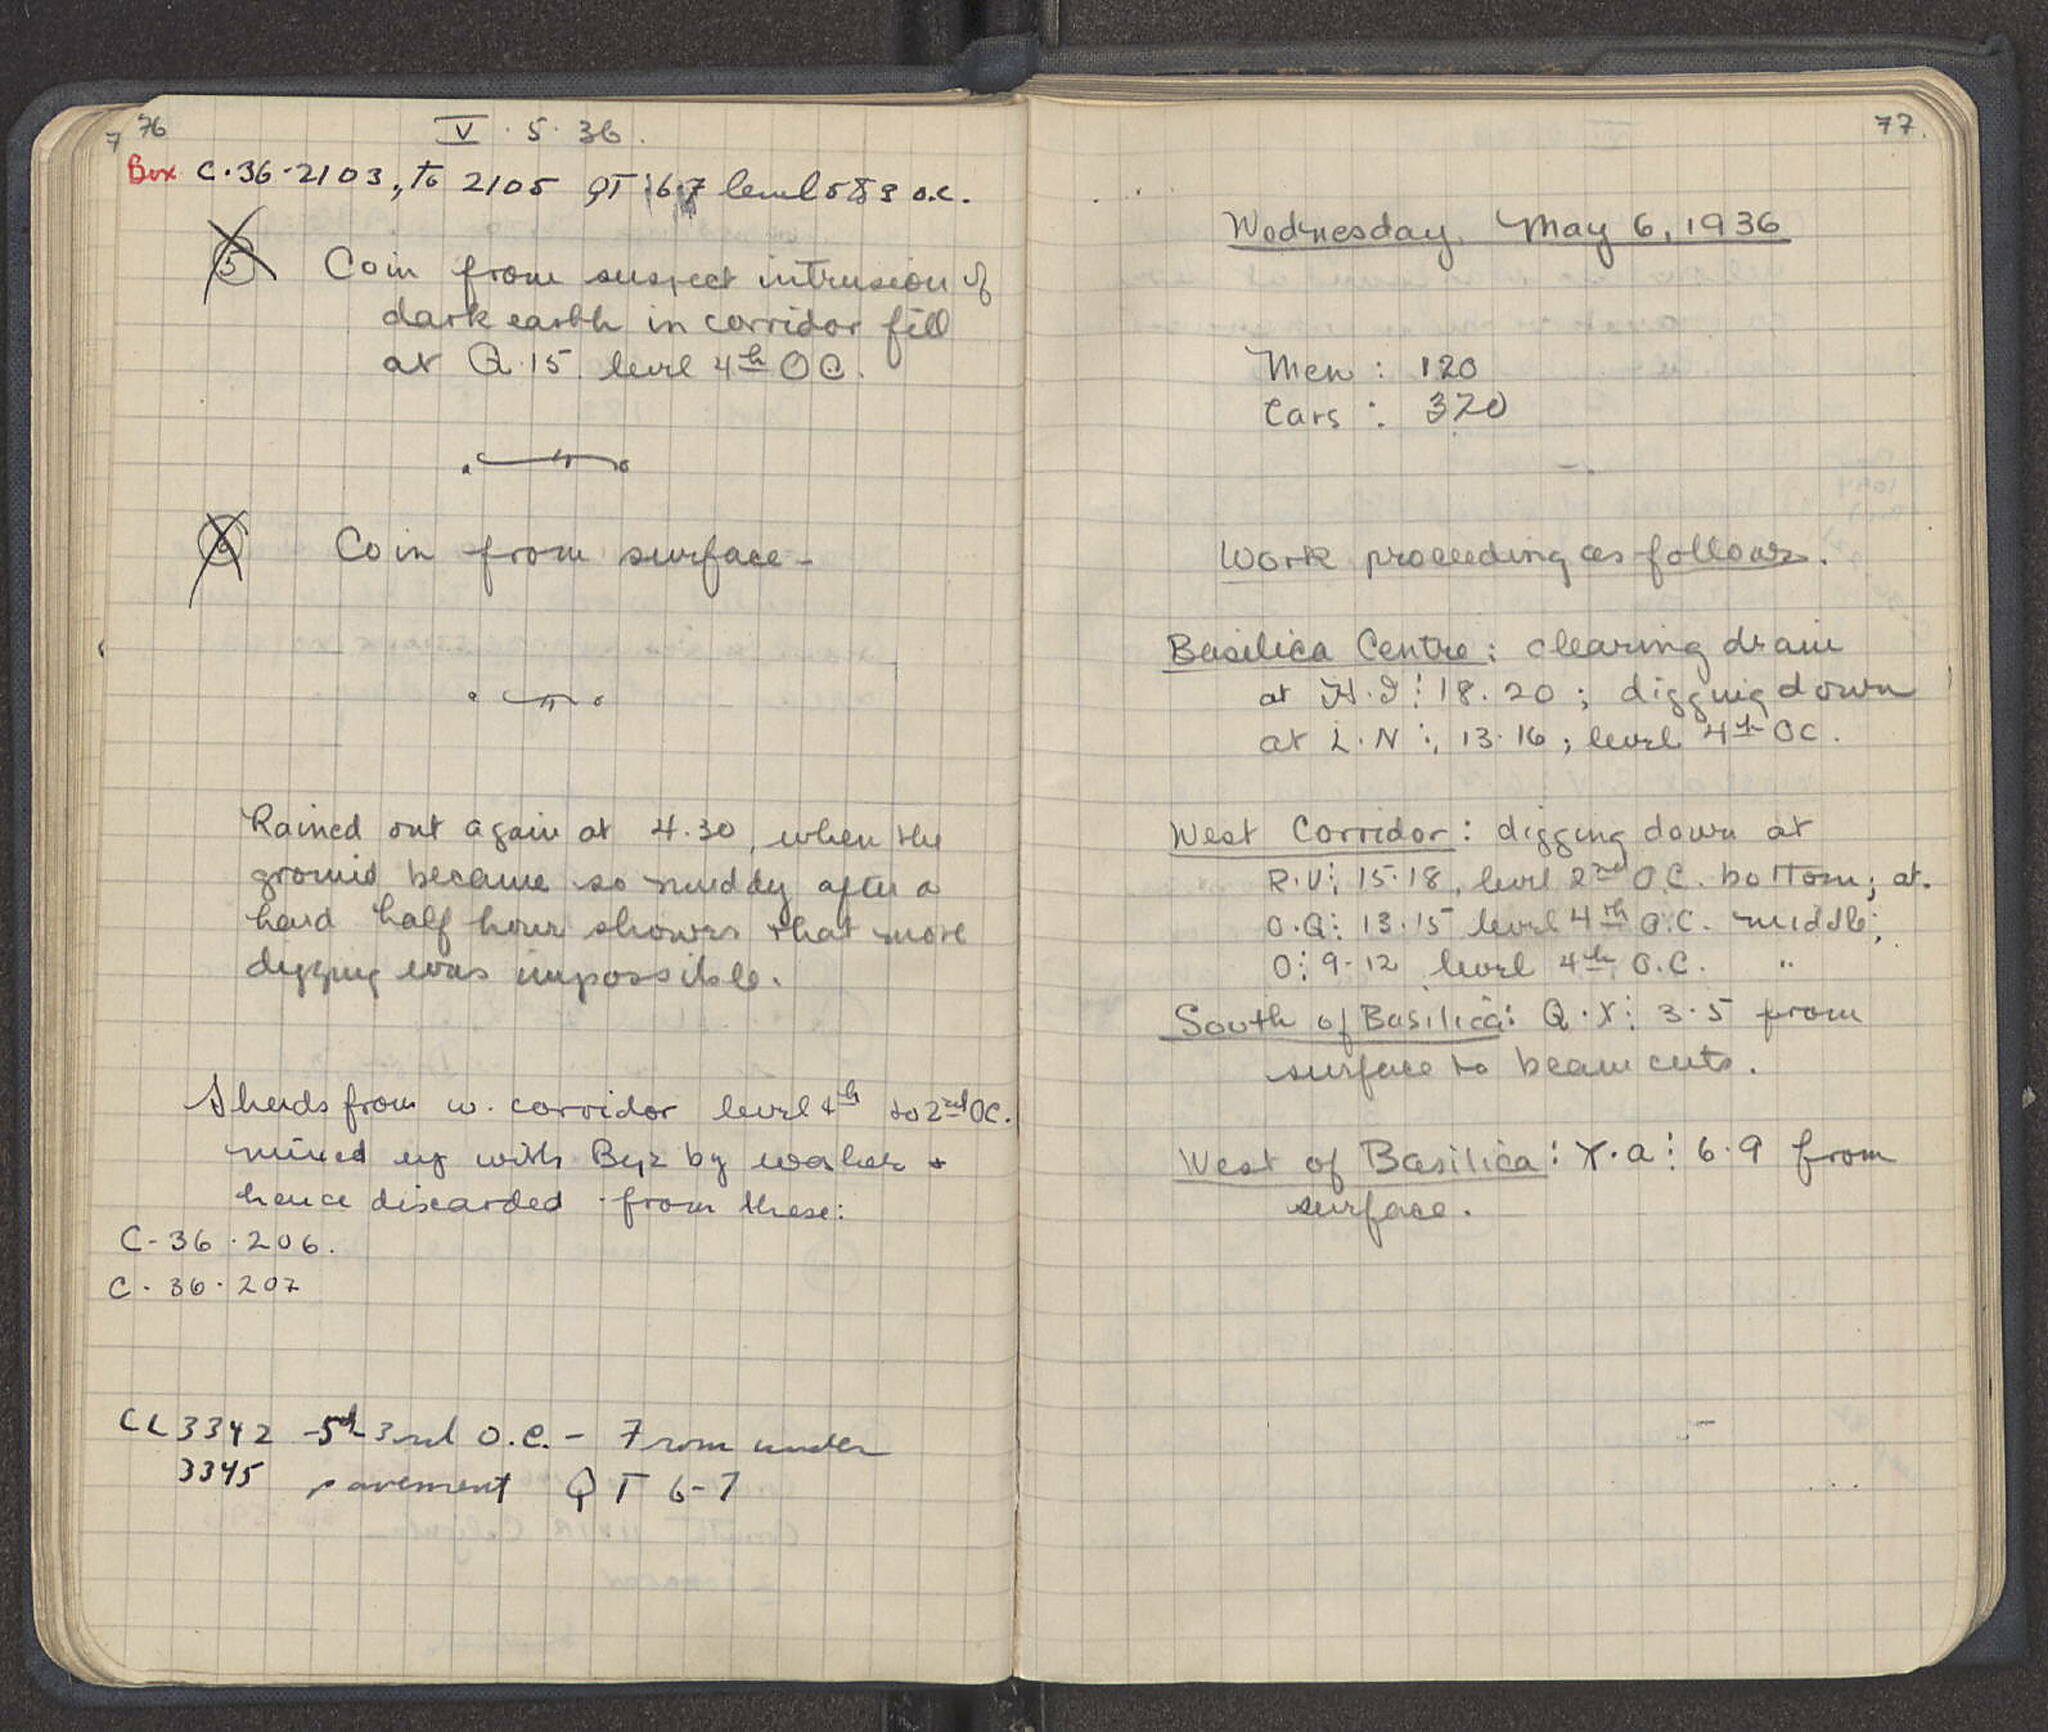 76
V · 5 · 36.
Box C·36-2103, to 2105 QT 6·7 level 5 & 3 O.C.
5 Coin from suspect intrusion of
dark earth in corridor fill
at Q·15. level 4th OC.
6 Coin from surface -
Rained out again at 4.30, when the
ground became so muddy after a
hard half hour shower that more
digging was impossible.
Sherds from w. corridor level 4th to 2nd OC.
mixed up with Byz by washer &
hence discarded from these:
C-36·206.
C·36·207
CL 3342 - 3rd O.C. - From under
3345 pavement QT 6-7
77.
Wednesday, May 6, 1936
Men: 120
Cars: 320
Work proceeding as follows.
Basilica Centre: clearing drain
at H·I: 18·20; digging down
at L·N: 13·16; level 4th OC.
West Corridor: digging down at
R·U: 15·18, level 2nd O.C. bottom; at
O·Q: 13·15 level 4th O.C. middle;
O: 9-12 level 4th O.C. "
South of Basilica: Q·X: 3·5 from
surface to beam cuts.
West of Basilica: X·a: 6·9 from
surface.